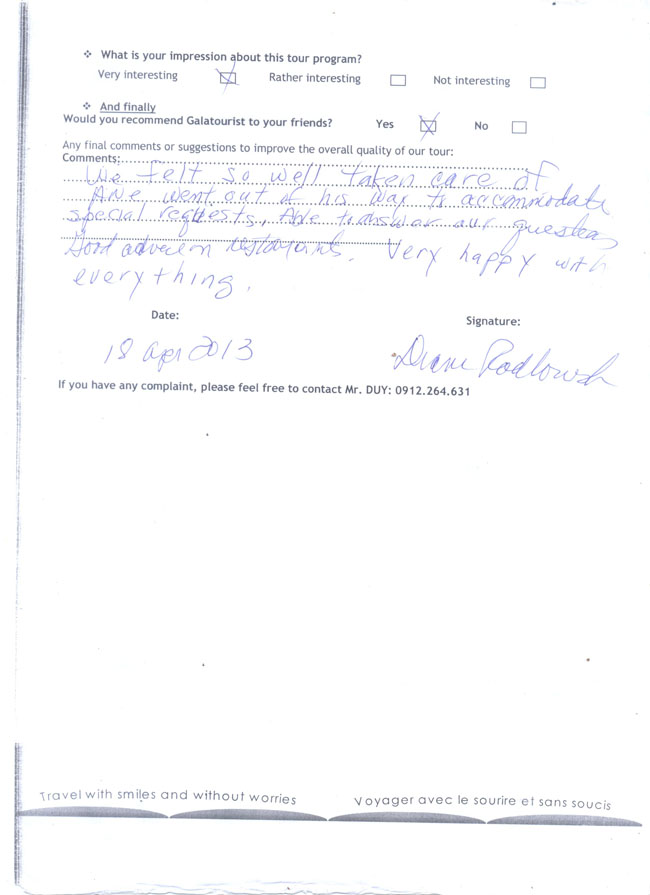 ❖ What is your impression about this tour program?
Very interesting Rather interesting Not interesting
❖ And finally
Would you recommend Galatourist to your friends? Yes No
Any final comments or suggestions to improve the overall quality of our tour:
Comments:
We felt so well taken care of
went out of his way to accommodate
special requests, Able to answer our questions
Good advice on restaurants. Very happy with
everything.
Date: Signature:
18 apr 2013 Diane
If you have any complaint, please feel free to contact Mr. DUY: 0912.264.631
Travel with smiles and without worries Voyager avec le sourire et sans soucis